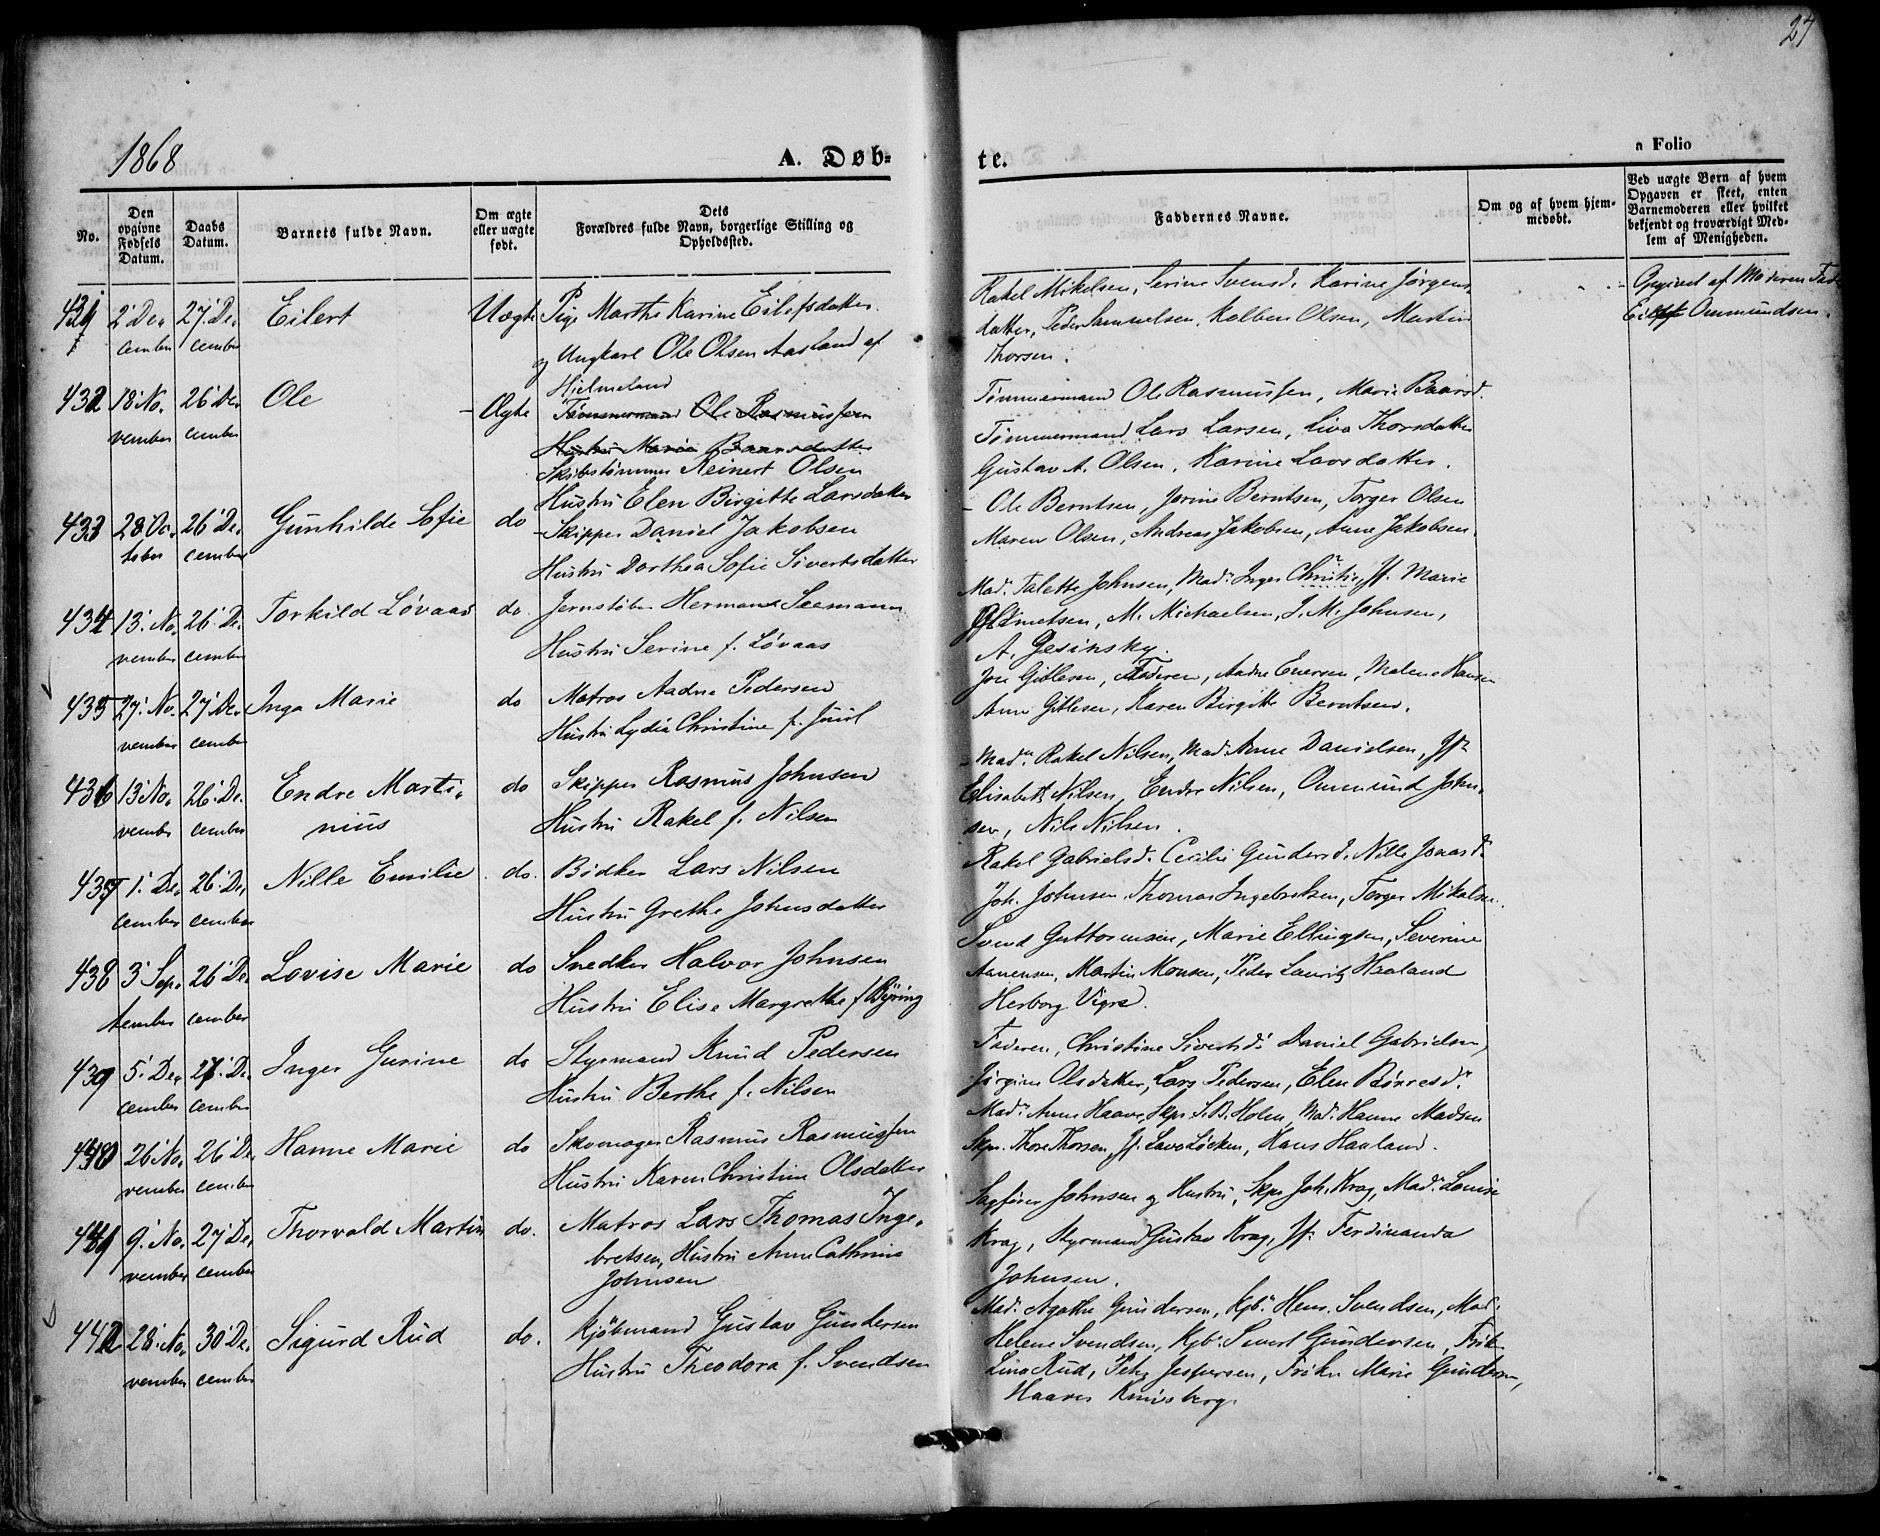 27
1868
A. Døb-
te.
n Folio
No.
Den opgivne Fødsels Datum.
Daabs Datum.
Barnets fulde Navn.
Om ægte eller uægte født.
Dets Forældres fulde Navn, borgerlige Stilling og Opholdssted.
Faddernes Navne.
Om og af hvem hjemmedøbt.
Ved uægte Børn af hvem Opgaven er skeet, enten Barnemoderen eller hvilket bekjendt og troværdigt Medlem af Menigheden.
431 2' December 27' December Eilert Uægte Pige Marthe Karine Eilefsdatter
og Ungkarl Ole Olsen Aasland af
Hjelmeland
Rakel Mikelsen, Serine Svensd. Karine Jørgens
datter, Peder Samuelsen, Kolben Olsen, Martin
Thorsen.
Opgivet af Moderens Fader
Omundsen.
432 18' November 26' December Ole Ægte Tømmermand Ole Rasmussen
Hustru Maria Baarsdatter
Skibstømmer Reinert Olsen
Hustru Elen Birgitte Larsdatter
Tømmermand Ole Rasmussen, Marie Baarsd.
Tømmermand Lars Larsen, Liva Thorsdatter
Gustav A. Olsen, Karine Larsdatter.
433 28' October 26' December Gunhilde Sofie do Skipper Daniel Jakobsen
Hustru Dorthea Sofie Sivertsdatter
Ole Berntsen, Jorine Berntsen, Torger Olsen
Maren Olsen, Andreas Jakobsen, Anne Jakobsen.
434 13' November 26' December Torkild Løvaas do. Jernstøber Herman Seemann
Hustru Serine f. Løvaas
Mad. Talette Johnsen, Mad. Inger Christie, Jf. Marie
M. Michaelsen, J. M. Johnsen,
A. Gesinsky.
435 27' November 27' December Inga Marie do Matros Aadne Pedersen
Hustru Lydia Christine f. Juul
Jon Gitlesen, Faderen, Aadne Enersen, Malene Hansen
Anne Gitlesen, Karen Birgitte Berntsen.
436 13' November 26' December Endre Marti-
nius do Skipper Rasmus Johnsen
Hustru Rakel f. Nilsen
Mad. Rakel Nilsen, Mad. Anne Danielsen, Jf.
Elisabeth Nilsen, Endre Nilsen, Ommund John-
sen, Nils Nilsen.
437 1' December 26' December Nille Emilie do. Bødker Lars Nilsen
Hustru Grethe Johnsdatter
Rakel Gabrielsd. Cecilie Gundersd. Nille Jonasd.
Joh. Johnsen, Thomas Ingebretsen, Torger Mikalsen.
438 3' September 26' December Lovise Marie do Snedker Halvor Johnsen
Hustru Elise Margrethe f. Bjøring
Svend Guttormsen, Marie Ellingsen, Severine
Aanensen, Martin Monsen, Peder Lauritz Haaland
Herborg Vigre.
439 5' December 27' December Inger Gurine do Styrmand Knud Pedersen
Hustru Berthe f. Nilsen
Faderen, Christine Sivertsd. Daniel Gabrielsen,
Jørgine Olsdatter, Lars Pedersen, Elen Børresd.
440 26' November 26' December Hanne Marie do Skomager Rasmus Rasmussen
Hustru Karen Christine Olsdatter
Mad. Anne Haave, Skpr. S. B. Holm, Mad. Hanne Madsen
Skpr. Thore Thorsen, Jf. Lava Løcken, Hans Haaland.
441 9' November 27' December Thorvald Martin do. Matros Lars Thomas Inge-
bretsen, Hustru Anne Cathrine
Johnsen
Sagfører Johnsen og Hustru, Skpr Joh. Krag, Mad. Louise
Krag, Styrmand Gustav Krag, Jf. Ferdinanda
Johnsen.
442 28' November 30' December Sigurd Rud do. Kjøbmand Gustav Gundersen
Hustru Theodora f. Svendsen
Mad. Agathe Gundersen, Kjb. Henr. Svendsen, Mad.
Helene Svendsen, Kjb. Sivert Gundersen, Frøken
Lina Rud, Peter Jespersen, Frøken Marie Gundersen,